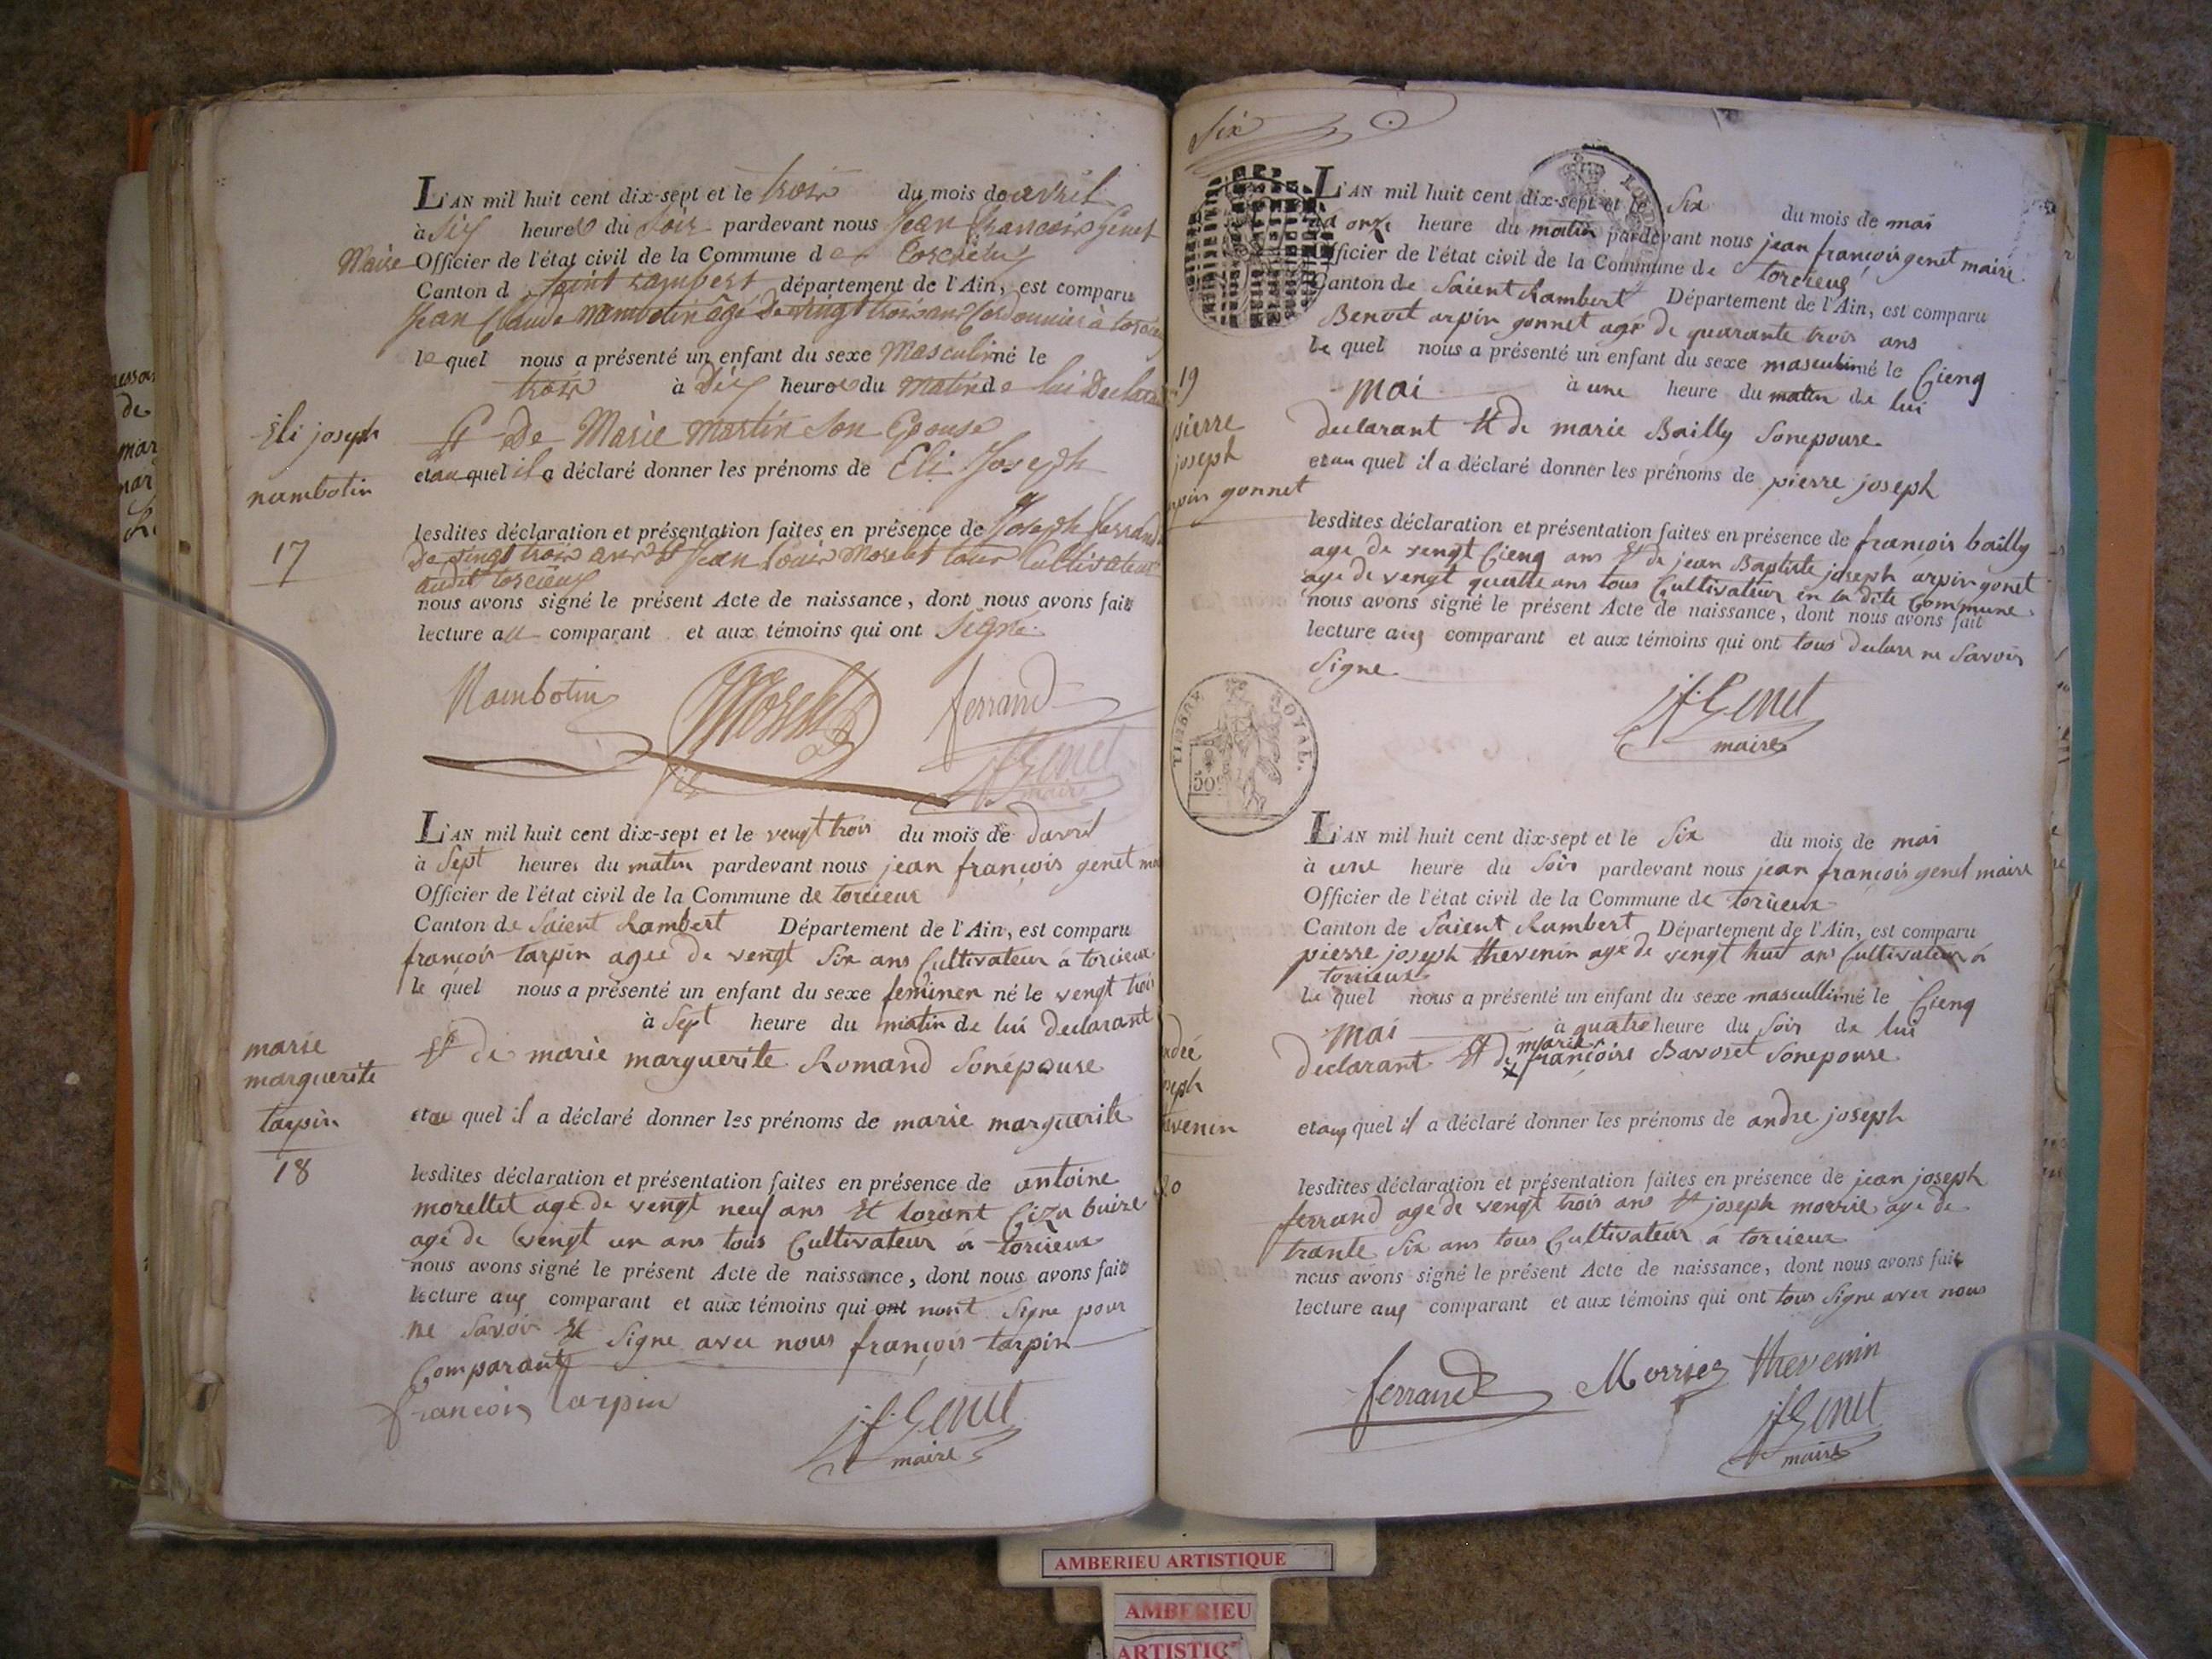 L'AN mil huit cent dix-sept et le trois du mois de avril
à six heures du soir pardevant nous Jean francois Genet
Maire Officier de l'état civil de la Commune de torcieux
Canton d Saint rampert département de l'Ain, est comparu
Jean Claude nambotin âgé de vingt trois ans Cordonnier à
le quel nous a présenté un enfant du sexe Masculin né le
trois à dix heures du matin de lui Declarant
Et De Marie Martin son Epouse
et au quel il a déclaré donner les prénoms de Eli Joseph
Eli joseph
nambotin
17
lesdites déclaration et présentation faites en présence de Joseph ferrand
De vingt trois ans et Jean Louis Morelet tous Cultivateur
audit torcieux
nous avons signé le présent Acte de naissance, dont nous avons fait
lecture au comparant et aux témoins qui ont Signé
Nambotin Morelet ferrand
jf Genet
maire
L'AN mil huit cent dix-sept et le vengt trois du mois de davril
à Sept heures du matin pardevant nous jean françois genet
Officier de l'état civil de la Commune de torcieux
Canton de Saient Rambert Département de l'Ain, est comparu
françois tarpin agée de vengt Six ans Cultivateur a torcieux
le quel nous a présenté un enfant du sexe feminen né le vengt trois
à Sept heure du matin de lui declarant
Et de marie marguerite Romand Sonépouse
et au quel il a déclaré donner les prénoms de marie marguerite
marie
marguerite
tarpin
18
lesdites déclaration et présentation faites en présence de antoine
morellet age de vengt neuf ans Et lorant Ciza buire
agé de vengt un ans tous Cultivateur a torcieux
nous avons signé le présent Acte de naissance, dont nous avons fait
lecture aux comparant et aux témoins qui ont nont Signe pour
ne Savoir Et Signe avec nous françois tarpin
Comparant
francois tarpin
j.f. Genet
maire
Six
L'AN mil huit cent dix-sept et le Six du mois de mai
à onze heure du matin pardevant nous jean françois genet maire
Officier de l'état civil de la Commune de torcieux
Canton de Saient Rambert Département de l'Ain, est comparu
Benoit arpin gonnet agé de quarante trois ans
le quel nous a présenté un enfant du sexe masculin né le Cienq
mai à une heure du matin de lui
declarant Et de marie Bailly Sonepouse
et au quel il a déclaré donner les prénoms de pierre joseph
19
pierre
joseph
arpin gonnet
lesdites déclaration et présentation faites en présence de françois bailly
age de vengt Cienq ans Et de jean Baptiste joseph arpin gonet
age de vengt quatre ans tous Cultivateur en la dite Commune
nous avons signé le présent Acte de naissance, dont nous avons fait
lecture aux comparant et aux témoins qui ont tous declare ne Savoir
Signe
jf. Genet
maire
TIMBRE ROYAL.
50
L'AN mil huit cent dix-sept et le Six du mois de mai
à une heure du Soir pardevant nous jean françois genet maire
Officier de l'état civil de la Commune de torcieux
Canton de Saient Rambert Département de l'Ain, est comparu
pierre joseph thevenin agé de vengt huit ans Cultivateur a
torcieux
le quel nous a présenté un enfant du sexe mascullin né le Cienq
mai à quatre heure du Soir de lui
declarant Et de marie françoise Baroset Sonepouse
et aux quel il a déclaré donner les prénoms de andre joseph
andré
joseph
thevenin
20
lesdites déclaration et présentation faites en présence de jean joseph
ferrand age de vengt trois ans Et joseph morrie age de
trante Six ans tous Cultivateur a torcieux
nous avons signé le présent Acte de naissance, dont nous avons fait
lecture aux comparant et aux témoins qui ont tous Signe avec nous
ferrand Morriez thevenin
jf Genet
maire
AMBERIEU ARTISTIQUE
AMBERIEU
ARTISTIQ